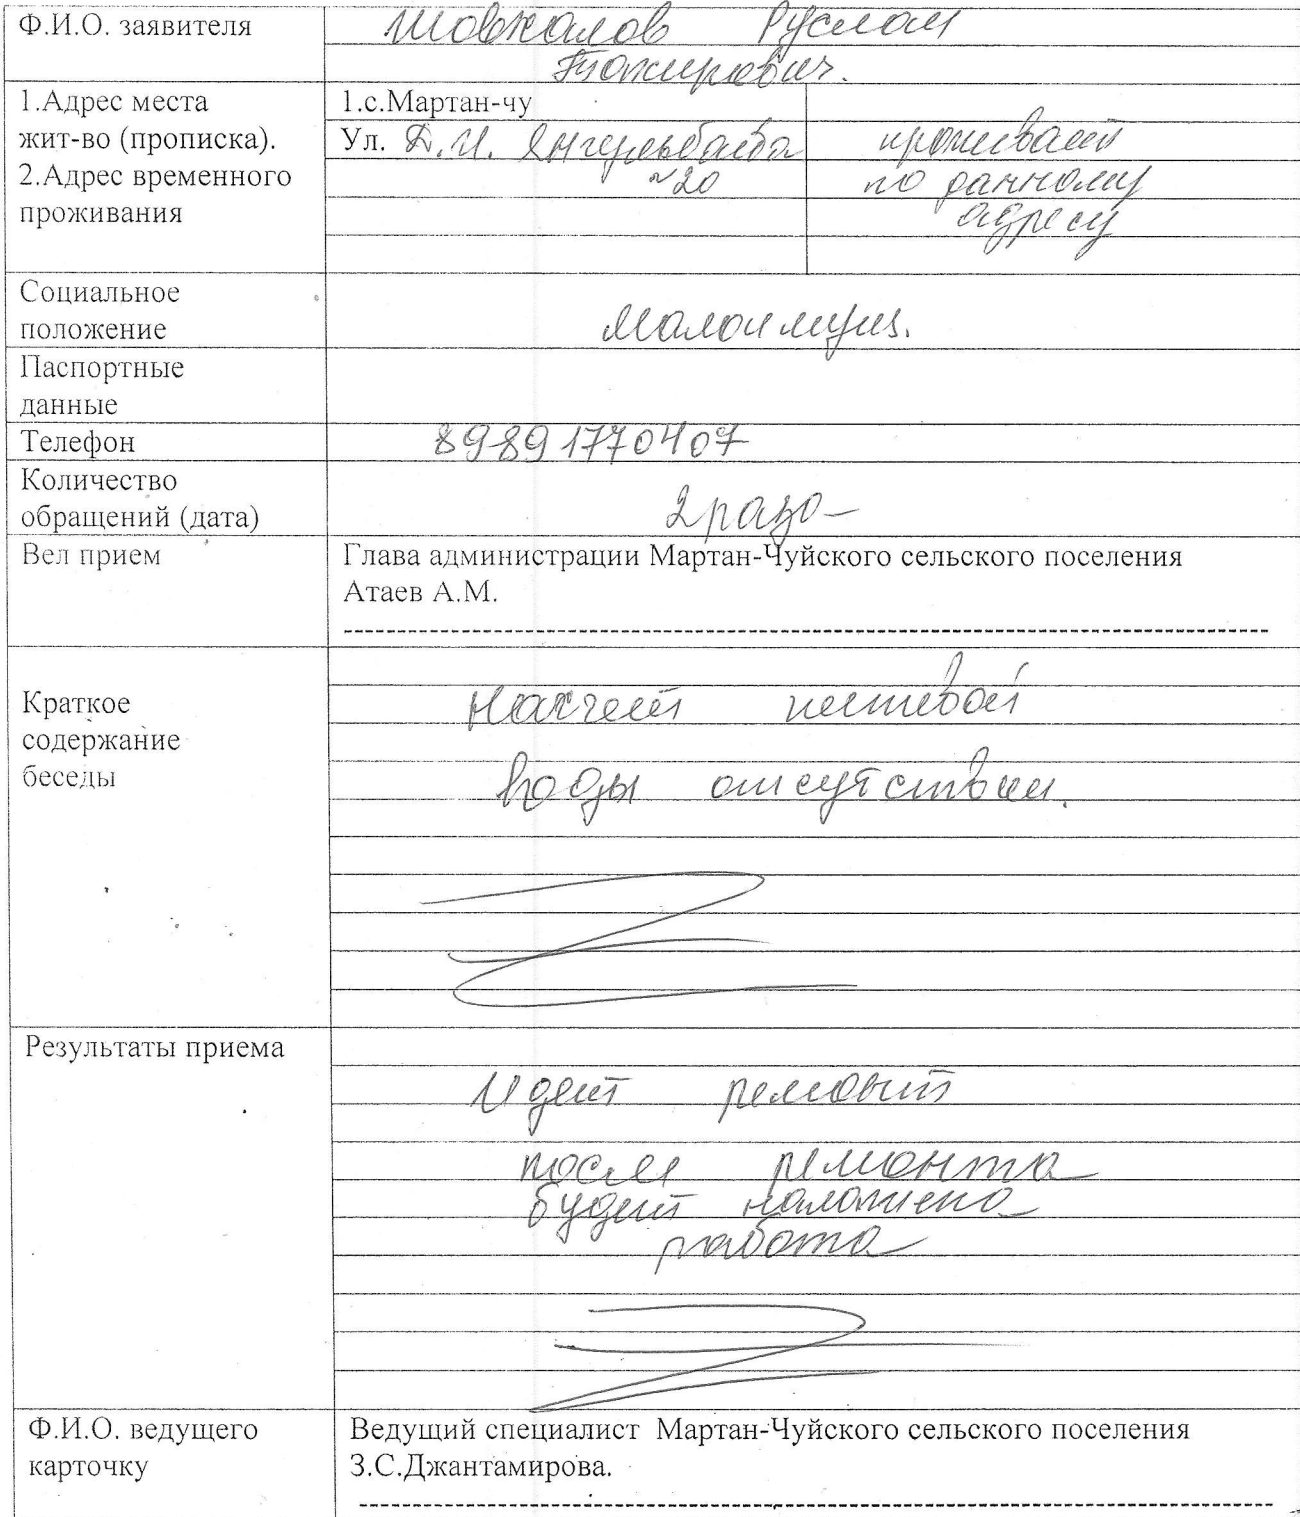 Ф.И.О. заявителя
Шовхалов Руслан
1.Адрес места
жит-во (прописка).
2.Адрес временного
проживания
1.с.Мартан-чу
Ул. Д.И. Янгульбаева
№20
проживает
по данному
адресу
Социальное
положение
Малоимущ.
Паспортные
данные
Телефон
89891770407
Количество
обращений (дата)
2 раза
Вел прием
Глава администрации Мартан-Чуйского сельского поселения
Атаев А.М.
Краткое
содержание
беседы
Насчет питевой
воды отсутствии.
Результаты приема
Идет ремонт
после ремонта
будет наложена
работа
Ф.И.О. ведущего
карточку
Ведущий специалист Мартан-Чуйского сельского поселения
З.С.Джантамирова.